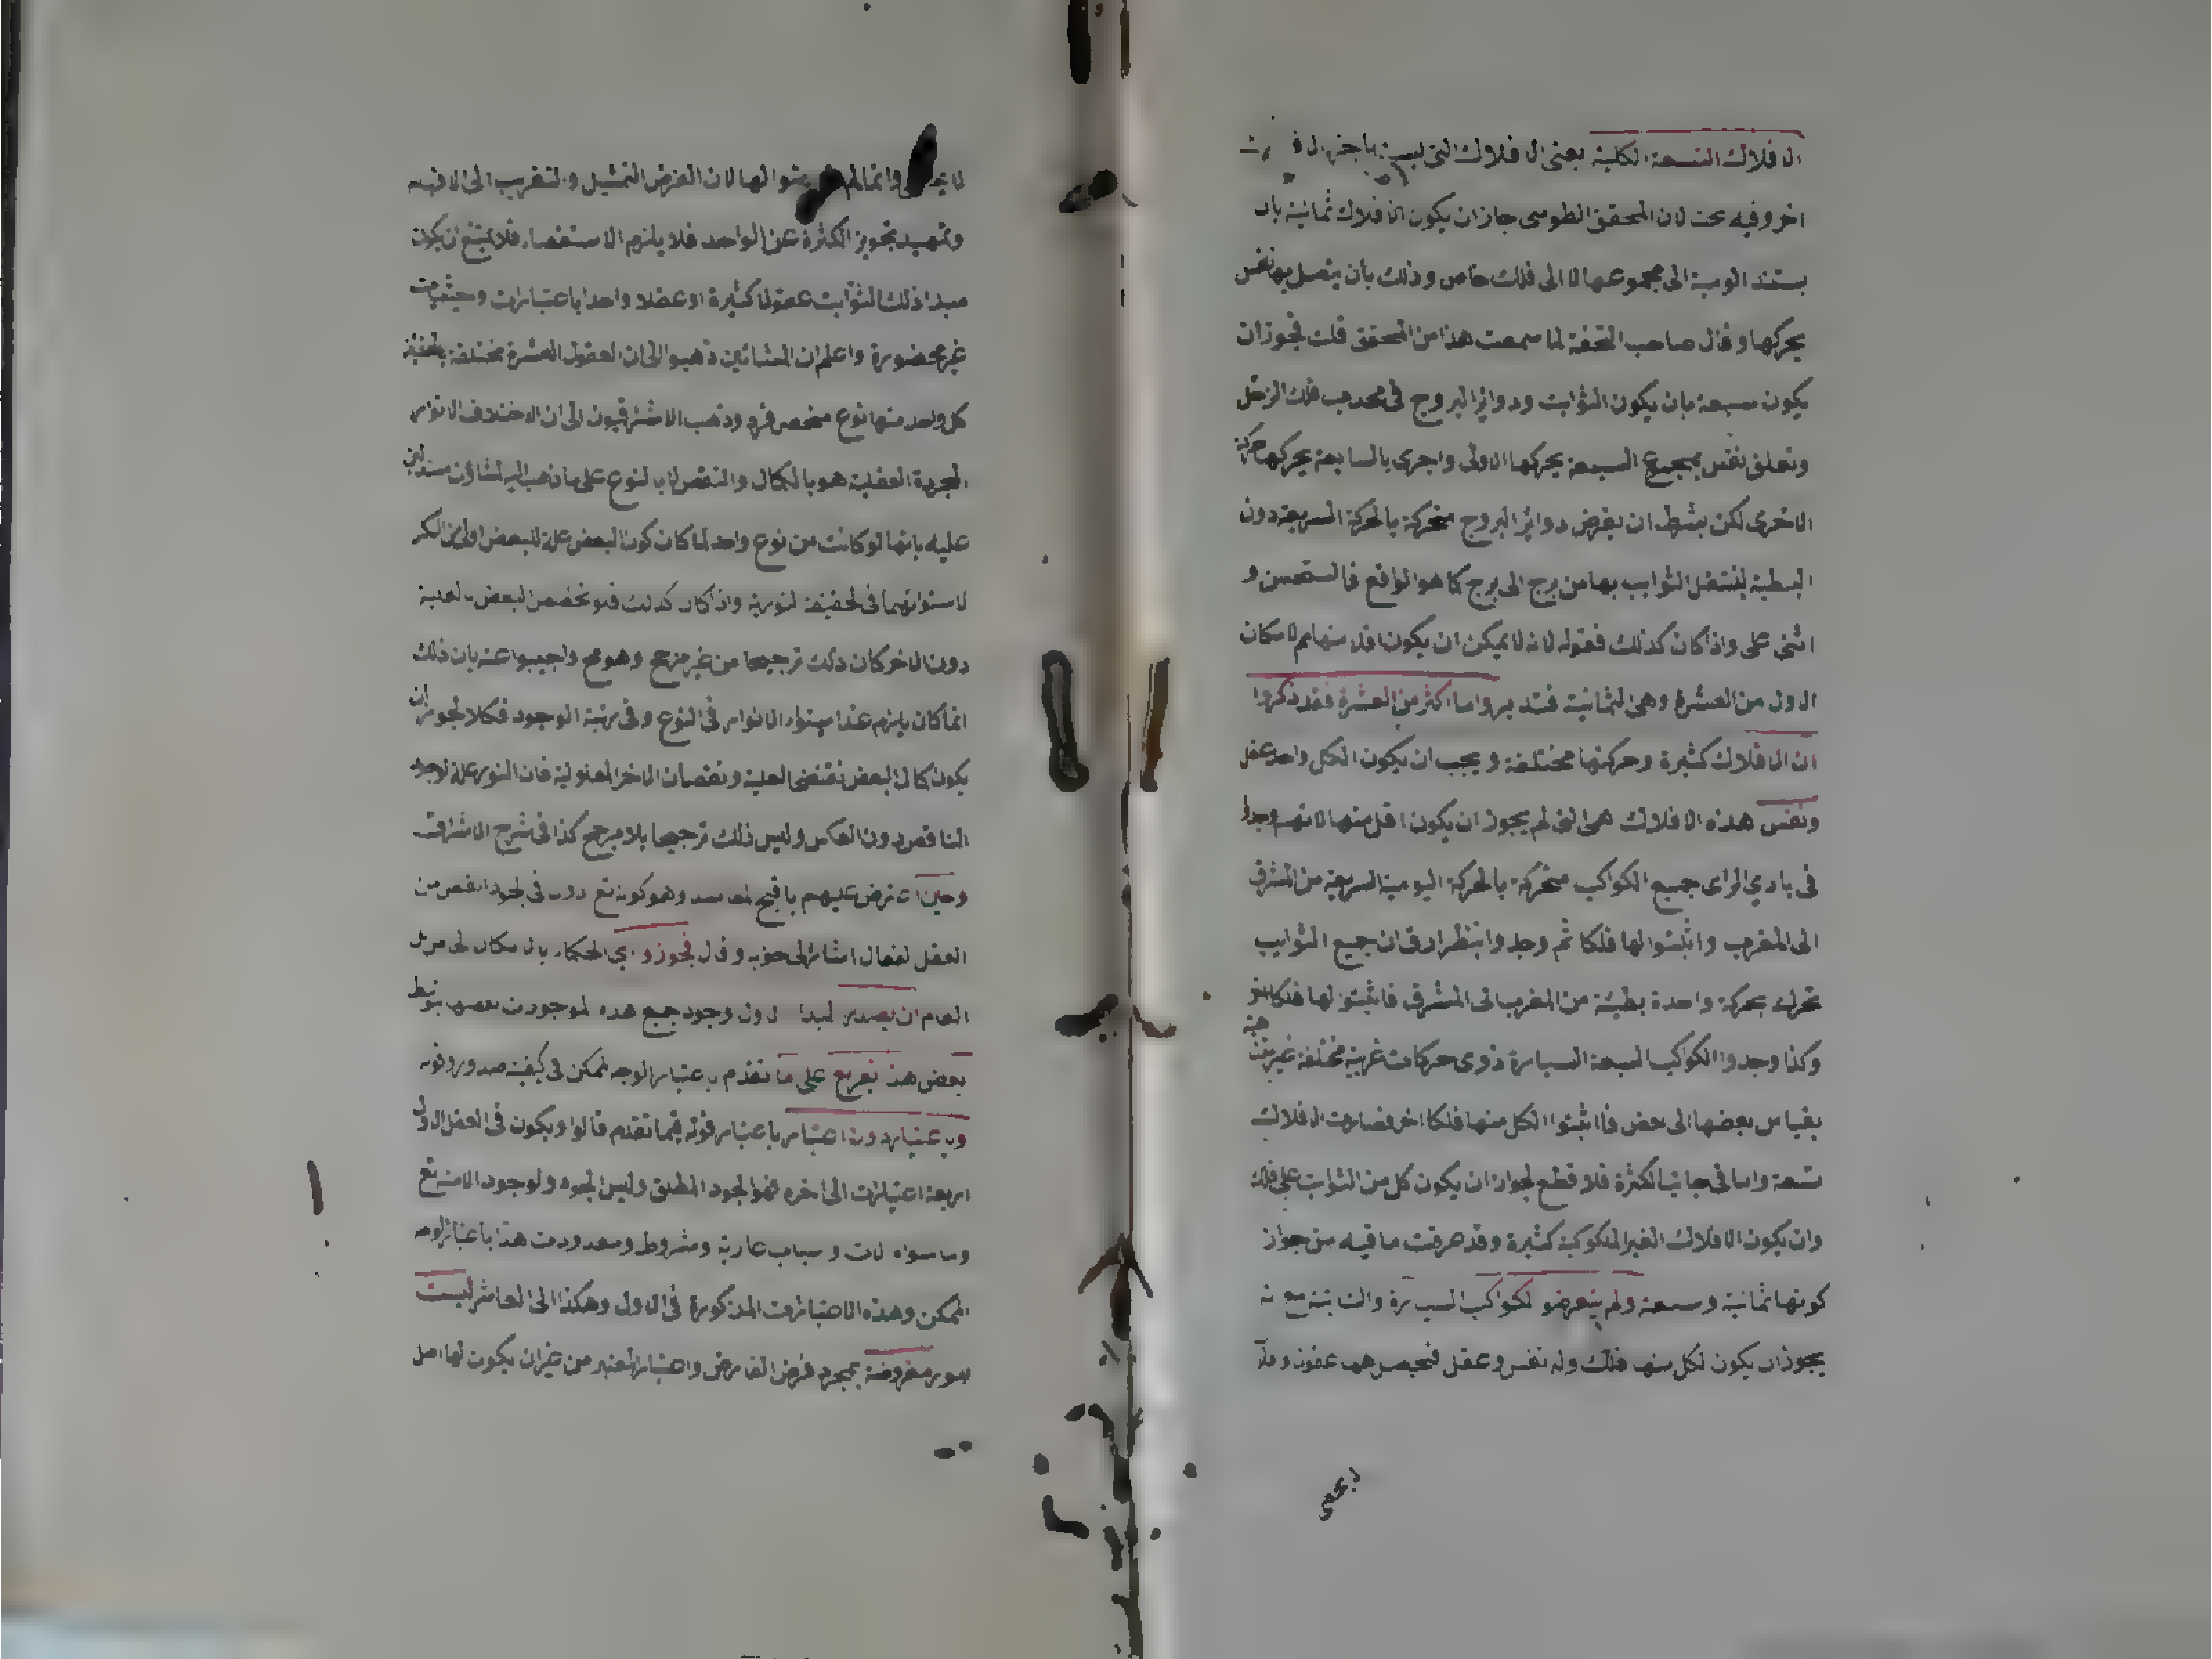 الافلاك التسعة الكلية يعنى الافلاك التى ليست باجزاء
اخر وفيه بحث لان المحقق الطوسى جاز ان يكون الافلاك ثمانية بان
يستند اليومية الى مجموعها لا الى فلك خاص وذلك بان يتصل بها نفس
يحركها وقال صاحب التحفة لما سمعت هذا من المحقق قلت فيجوز ان
يكون سبعة بان يكون الثوابت ودوائر البروج فى محدب فلك الزحل
وتعلق نفس بمجموع السبعة يحركها الاولى واخرى بالسابعة يحركها حركة
الاخرى لكن بشرط ان يفرض دوائر البروج متحركة بالحركة السريعة دون
البطيئة لينتقل الثوابت بها من برج الى برج كما هو الواقع فاستحسن و
اثنى على واذا كان كذلك فقوله لانه لا يمكن ان يكون اقل منها لامكان
الاول من العشرة وهى الثمانية فتدبر واما اكثر من العشرة فقد ذكروا
ان الافلاك كثيرة وحركتها مختلفة ويجب ان يكون لكل واحد عقل
ونفس هذه الافلاك هى التى لم يجوز ان يكون اقل منها لانهم وجدوا
فى بادي الراى جميع الكواكب متحركة بالحركة اليومية السريعة من المشرق
الى المغرب واثبتوا لها فلكا ثم وجدوا بنظر ادق ان جميع الثوابت
تحرك بحركة واحدة بطيئة من المغرب الى المشرق فاثبتوا لها فلكا اخر
وكذا وجدوا الكواكب السبعة السيارة ذوى حركات غريبة مختلفة غير متشابهة
بقياس بعضها الى بعض فاثبتوا لكل منها فلكا اخر فصارت الافلاك
تسعة واما فى جانب الكثرة فلا قطع لجواز ان يكون كل من الثوابت على فلك
وان يكون الافلاك الغير المكوكبة كثيرة وقد عرفت ما فيه من جواز
كونها ثمانية وسبعة ولم يتعرضو لكواكب السيارة والثابتة مع انه
يجوز ان يكون لكل منها فلك وله نفس وعقل فيحصل عقول
وانما لم لها لان الغرض التمثيل والتقريب الى الافهام
وتمهيد تجويز الكثرة عن الواحد فلا يلزم الاستقصاء فلا يمتنع ان يكون
مبدا ذلك الثوابت عقولا كثيرة او عقلا واحدا باعتبارات وحيثيات
غير محصورة واعلم ان المشائين ذهبوا الى ان العقول العشرة مختلفة بالحقيقة
كل واحد منها نوع منحصر فرد وذهب الاشراقيون الى ان الاختلاف الانوار
المجردة العقلية هو بالكمال والنقص لا بالنوع على ما ذهب اليه المشاؤن مستدلين
عليه بانها لو كانت من نوع واحد لما كان كون البعض علة للبعض اولى من العكس
لاستوائهما فى الحقيقة النورية واذا كان كذلك فلو تخصص البعض بالعلية
دون الاخر كان ذلك ترجيحا من غير مرجح وهو مح واجيبوا عنه بان ذلك
انما كان يلزم عند استواء الانوار فى النوع وفى رتبة الوجود فكلا لجواز ان
يكون كمال البعض يقتضى العلية ونقصان الاخر المعلولية فان النور علة لوجود
الناقص دون العكس وليس ذلك ترجيحا بلا مرجح كذا فى شرح الاشراقت
وحين اعترض عليهم باقبح المفاسد وهو كونه تع دون فى الجود انقص من
العقل الفعال اشار الى جوابه وقال فيجوز اي الحكماء بالامكان
العام ان يصدر المبدا الاول وجود جميع هذه الموجودات بعضها بتوسط
بعض هذا تفريع على ما تقدم باعتبار الوجه الممكن فى كيفية صدور وقوله
وباعتبار دون اعتبار باعتبار قوله فيما تقدم قالوا ويكون فى العقل الاول
اربعة اعتبارات الى اخره فهو الجود المطلق وليس الجود والوجود الا منه تع
وما سواه الات واسباب عارية ومشروط ومعدودت هذا باعتبار الوجه
الممكن وهذه الاعتبارات المذكورة فى الاول وهكذا الى العاشر ليست
امور مفروضة بمجرد فرض الفارض واعتبار المعتبر من غير ان يكون لها اصل